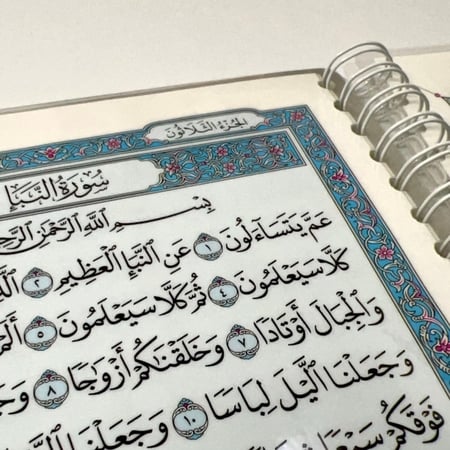 الجُزْءُ الثَّلَاثُونَ
سُورَةُ النَّبَإِ
بِسْمِ اللَّهِ الرَّحْمَٰنِ
عَمَّ يَتَسَاءَلُونَ ١ عَنِ النَّبَإِ الْعَظِيمِ ٢
كَلَّا سَيَعْلَمُونَ ٤ ثُمَّ كَلَّا سَيَعْلَمُونَ ٥
وَالْجِبَالَ أَوْتَادًا ٧ وَخَلَقْنَاكُمْ أَزْوَاجًا ٨
وَجَعَلْنَا اللَّيْلَ لِبَاسًا ١٠ وَجَعَلْنَا
فَوْقَكُمْ سَبْعًا